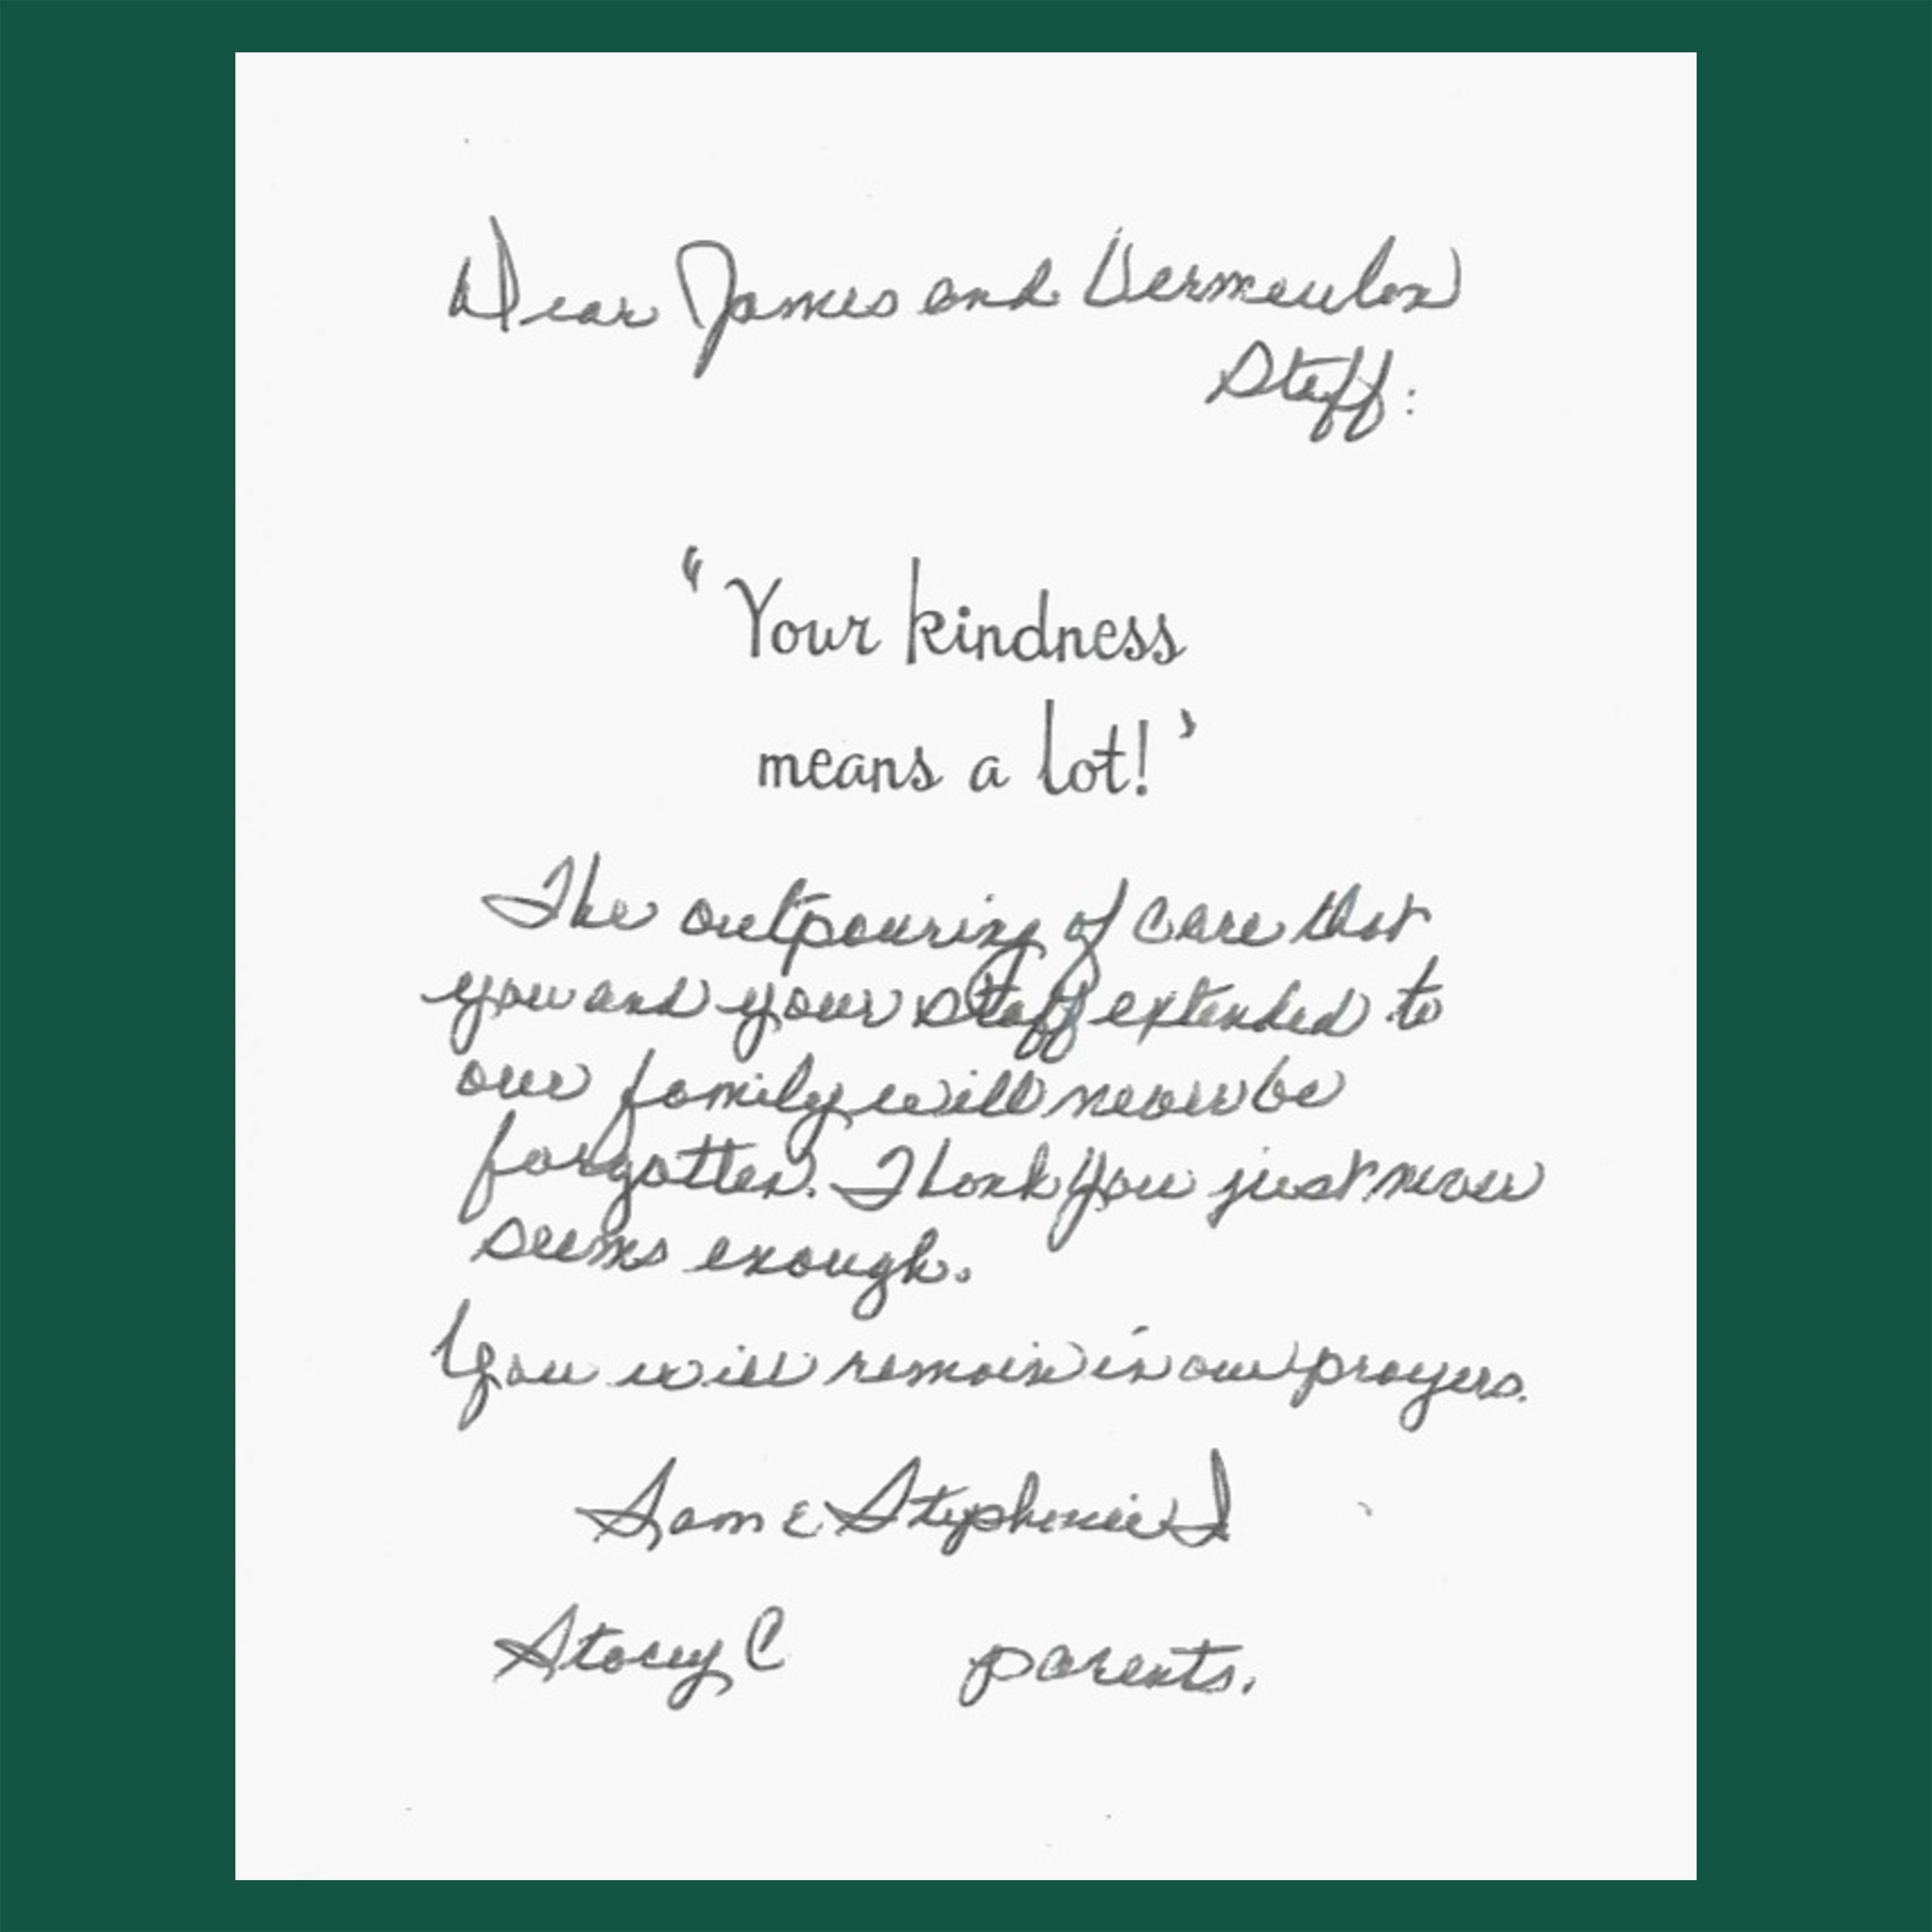 Dear James and Vermeulen
Staff:
"Your kindness
means a lot!"
The outpouring of care that
you and your staff extended to
our family will never be
forgotten. Thank You just never
seems enough.
You will remain in our prayers.
Sam & Stephenie S
Stacey C parents.